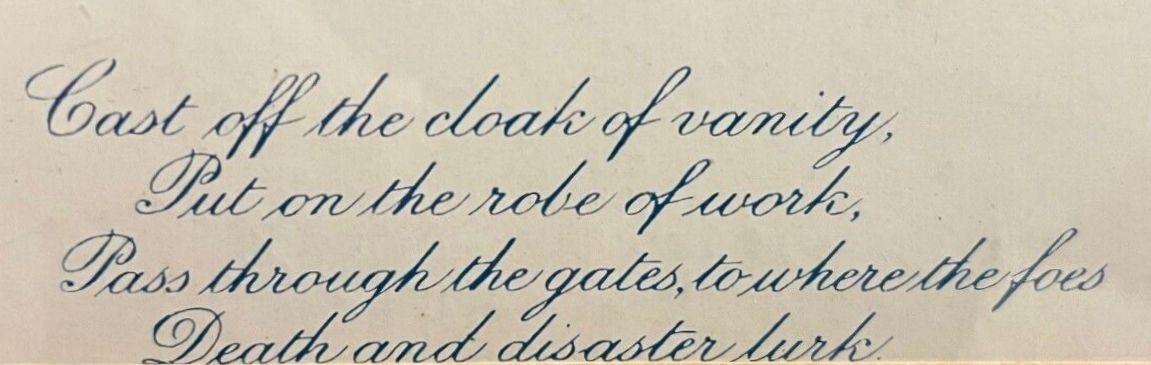 Cast off the cloak of vanity,
Put on the robe of work,
Pass through the gates, to where the foes
Death and disaster lurk.